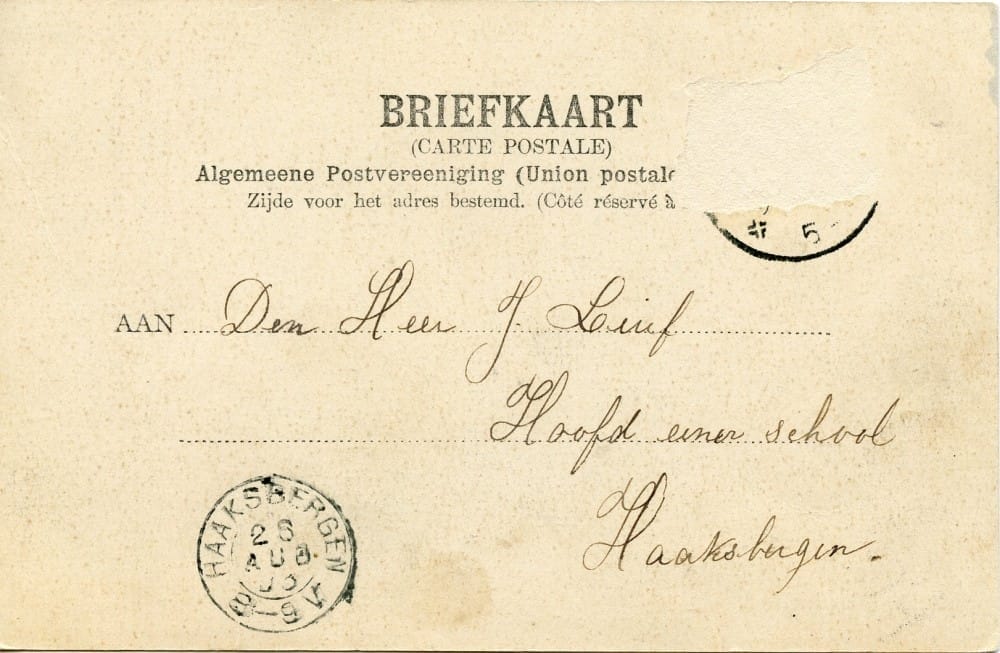 BRIEFKAART
(CARTE POSTALE)
Algemeene Postvereeniging (Union postale
Zijde voor het adres bestemd. (Côté réservé à
5
AAN Den Heer J. Leuf
Hoofd eener school
Haaksbergen.
HAAKSBERGEN
26
AUG
8-9V